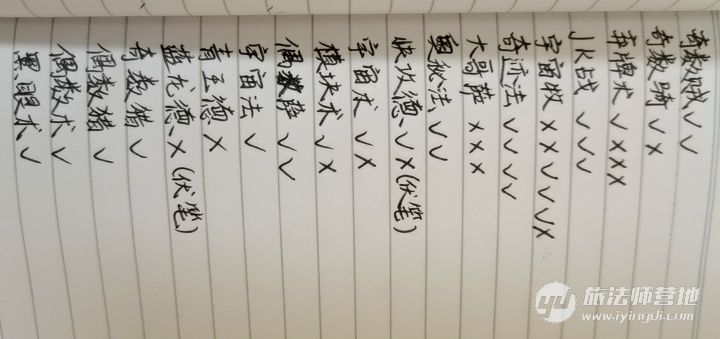 奇数贼 ✓✓
奇数骑 ✓×
弃牌术 ✓×××
JK战 ✓✓✓
宇宙牧 ××✓✓✓×
奇迹法 ✓✓✓✓
大哥萨 ×××
奥秘法 ✓✓
快攻德 ✓×(伏笔)
宇宙术 ✓×
模块术 ✓×
偶数萨 ✓✓
宇宙法 ✓
青玉德 ×
蓝龙德 ×(伏笔)
奇数猎 ✓
偶数猎 ✓
偶数术 ✓
黑眼术 ✓
旅法师营地
www.iyingdi.com